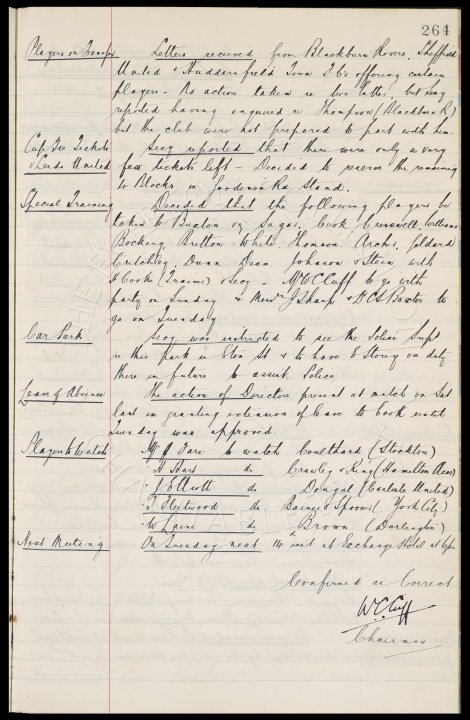 264
Players on Transfer Letters received from Blackburn Rovers, Sheffield
United & Huddersfield Town F Cs offering certain
players - No action taken re two latter, but Secy
reported having enquired re Thompson (Blackburn R)
but the club were not prepared to part with him.
Cup Tie Tickets Secy reported that there were only a very
v Leeds United few tickets left - Decided to reserve the remaining
4 Blocks in Goodison Rd Stand.
Special Training Decided that the following players be
taken to Buxton viz Sagar, Cook Cresswell, Williams
Bocking, Britton White, Thomson. Archer, Geldard
Critchley, Dunn Dean Johnson & Stein with
H Cooke (Trainer) & Secy - Mr W C Cuff to go with
party on Sunday & Messrs J Sharp & A C S Baxter to
go on Tuesday
Car Park Secy was instructed to see the Police Supt
re this park in Eton St & to have E Storey on duty
there in future to assist Police
Leave of Absence The action of Directors present at match on Sat
last in granting extension of leave to Cook until
Tuesday was approved.
Players to Watch Mr J Fare to watch Coulthard (Stockton)
H Hart do Crawley & King (Hamilton Acas)
J Elliott do Dougal (Carlisle United)
T. Fleetwood do Baines & Spooner (York City)
W Lairs do Brown (Darlington)
Next Meeting On Tuesday next 14 inst at Exchange Hotel at 6pm
Confirmed as Correct
W. C. Cuff
Chairman